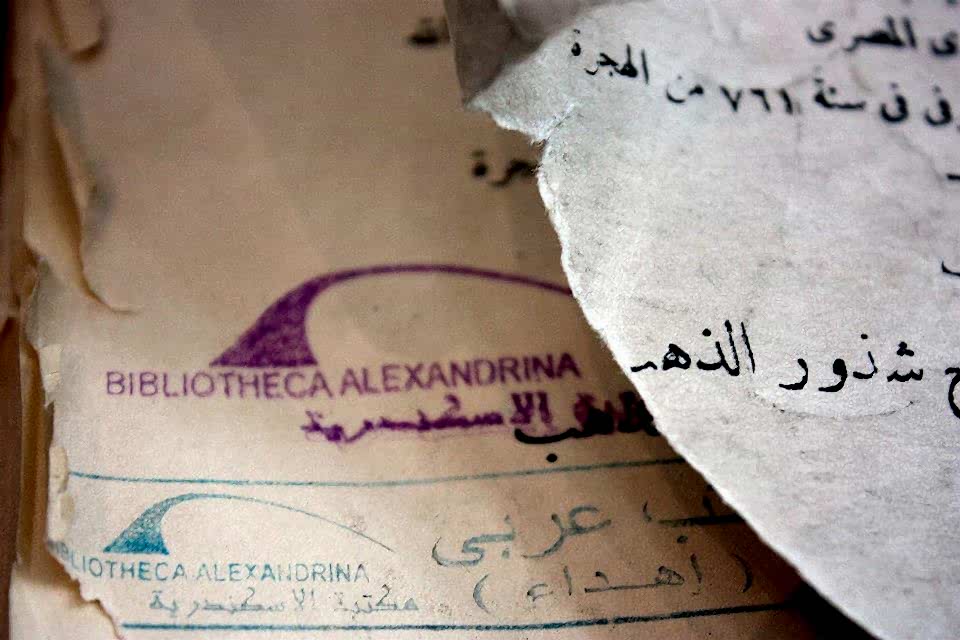 ى المصرى
فى فى سنة ٧٦١ من الهجرة
شذور الذهـ
الله
جرة
BIBLIOTHECA ALEXANDRINA
مكتبة الاسكندرية
عربى
( اهداء )
BIBLIOTHECA ALEXANDRINA
مكتبة الاسكندرية